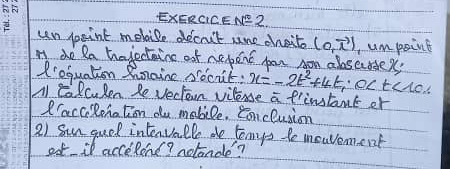 Tél.: 27
27 2
EXERCICE N° 2
un point mobile décrit une droite (o, i⃗), un point
M de la trajectoire est repéré par son abscisse x;
l'équation horaire s'écrit: x = - 2t²+4t; 0< t<10s
1) Calculer le vecteur vitesse à l'instant et
l'accélération du mobile. Conclusion
2) Sur quel intervalle de temps le mouvement
est-il accéléré? retardé?